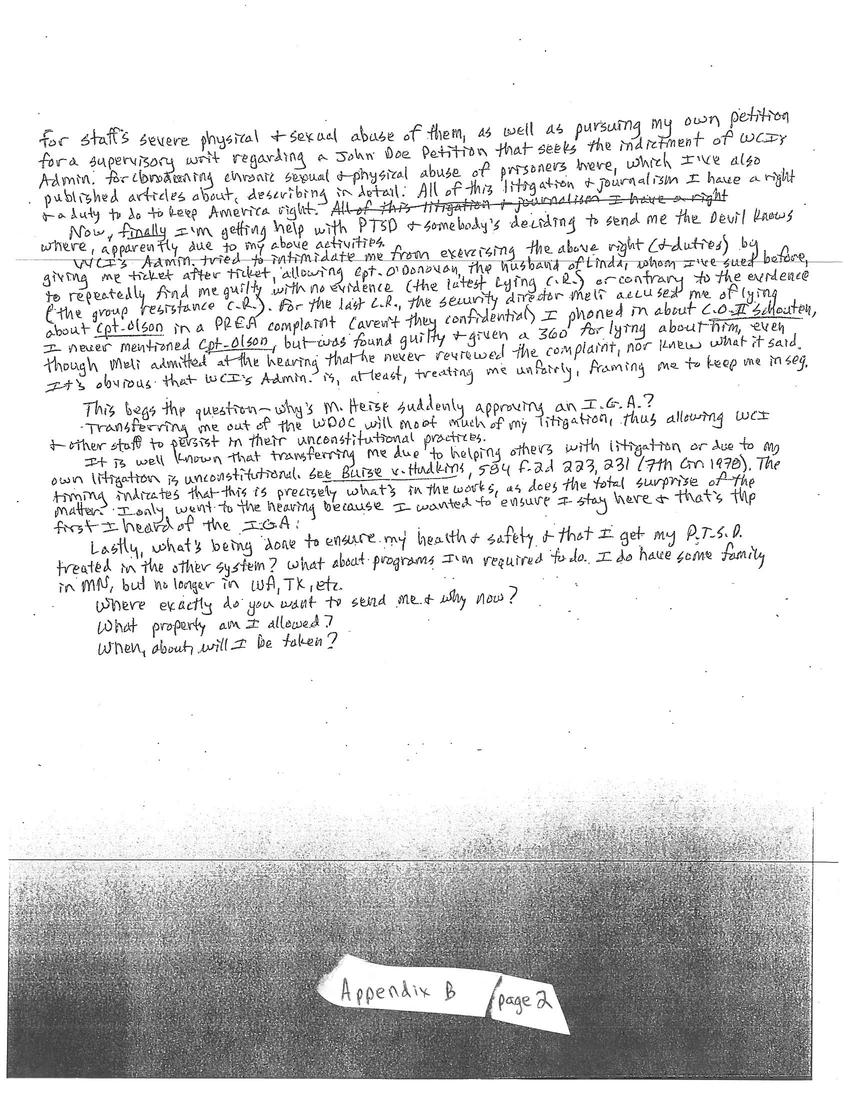 for staff's severe physical + sexual abuse of them, as well as pursuing my own petition
for a supervisory writ regarding a John Doe Petition that seeks the indictment of WCI's
Admin. for condoning chronic sexual + physical abuse of prisoners here, which I've also
published articles about, describing in detail. All of this litigation + journalism I have a right
+ a duty to do to keep America right. All of this litigation + journalism I have a right
Now, finally I'm getting help with PTSD + somebody's deciding to send me the Devil knows
where, apparently due to my above activities.
WCI's Admin. tried to intimidate me from exercising the above right (+ duties) by
giving me ticket after ticket, allowing Cpt. O'Donovan, the husband of Linda, whom I've sued before,
to repeatedly find me guilty with no evidence (the latest Lying C.R.) or contrary to the evidence
(the group resistance C.R.). For the last C.R., the security director Meli accused me of lying
about Cpt. Olson in a PREA complaint (aren't they confidential) I phoned in about C.O. II Schouten,
I never mentioned Cpt. Olson, but was found guilty + given a 360 for lying about him, even
though Meli admitted at the hearing that he never reviewed the complaint, nor knew what it said.
It's obvious that WCI's Admin. is, at least, treating me unfairly, framing me to keep me in seg.
This begs the question - why's M. Heise suddenly approving an I.G.A.?
Transferring me out of the WDOC will moot much of my litigation, thus allowing WCI
+ other staff to persist in their unconstitutional practices.
It is well known that transferring me due to helping others with litigation or due to my
own litigation is unconstitutional. See Buise v. Hudkins, 584 F.2d 223, 231 (7th Cir 1978). The
timing indicates that this is precisely what's in the works, as does the total surprise of the
matter. I only went to the hearing because I wanted to ensure I stay here + that's the
first I heard of the I.G.A.
Lastly, what's being done to ensure my health + safety + that I get my P.T.S.D.
treated in the other system? What about programs I'm required to do. I do have some family
in MN, but no longer in WA, TX, etc.
Where exactly do you want to send me + why now?
What property am I allowed?
When, about, will I be taken?
Appendix B
page 2